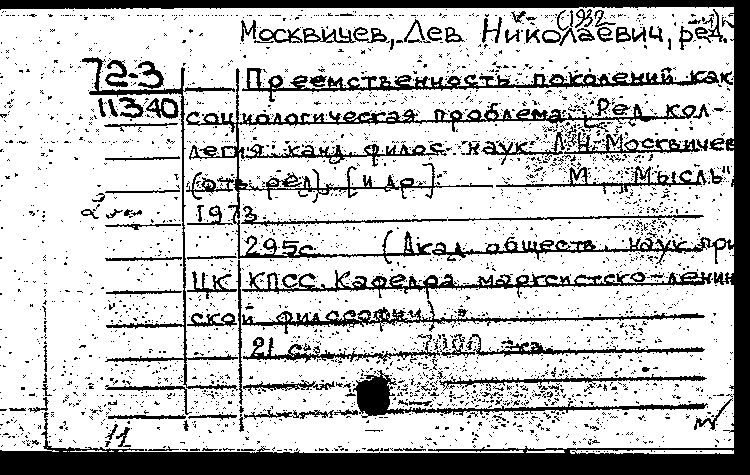 (1932-
Москвичев, Лев Николаевич, ред.
72-3
11340
Преемственность поколений как
социологическая проблема. Ред. кол-
легия: канд. филос. наук Л.Н. Москвичев
(отв. ред), [и др.] М., "Мысль",
1973
295с. (Акад. обществ. наук при
ЦК КПСС. Кафедра марксистско-ленин
ской философии).
21 с 7000 экз.
11